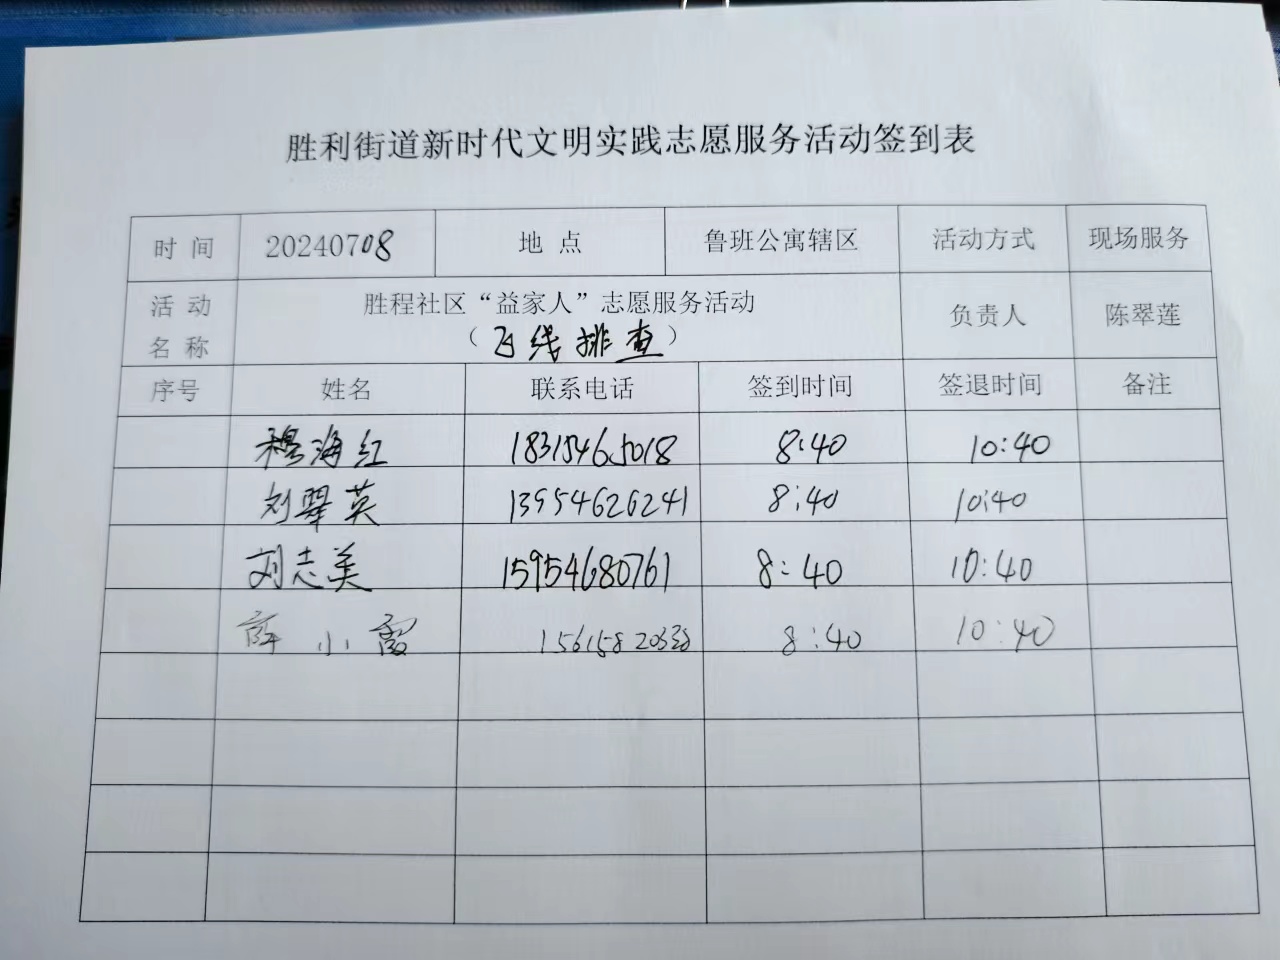 胜利街道新时代文明实践志愿服务活动签到表
时间 20240708 地点 鲁班公寓辖区 活动方式 现场服务
活动名称 胜程社区“益家人”志愿服务活动 负责人 陈翠莲
（飞线排查）
序号 姓名 联系电话 签到时间 签退时间 备注
穆海红 18315465018 8:40 10:40
刘翠英 13954626241 8:40 10:40
刘志美 15954680761 8:40 10:40
薛小霞 8:40 10:40